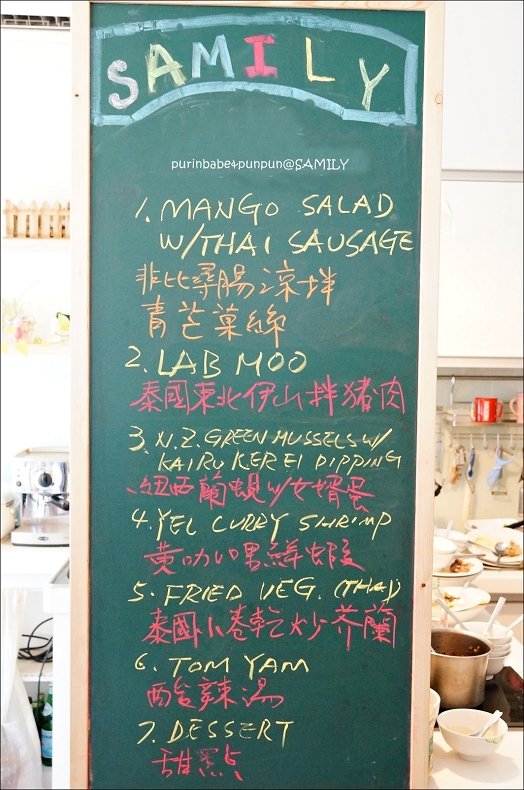 SAMILY
purinbabe&punpun@SAMILY
1. MANGO SALAD
W/THAI SAUSAGE
非比尋腸涼拌
青芒菓絲
2. LAB MOO
泰國東北伊山拌猪肉
3. N.Z. GREEN MUSSELS W/
KAIRU KER EI DIPPING
紐西蘭蜆 女婿蛋
4. YEL CURRY SHRIMP
黄咖哩鮮蝦
5. FRIED VEG. (THAI)
泰國小卷乾炒芥蘭
6. TOM YAM
酸辣湯
7. DESSERT
甜點